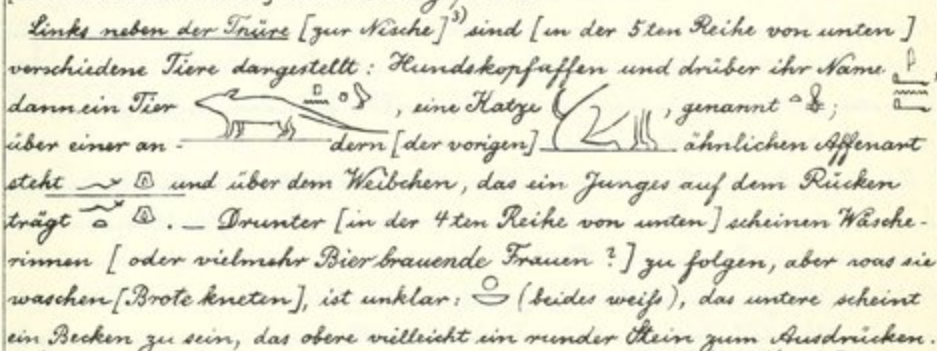 Links neben der Thüre [zur Nische]³⁾ sind [in der 5ten Reihe von unten]
verschiedene Tiere dargestellt: Hundskopfaffen und drüber ihr Name
dann ein Tier , eine Katze , genannt ;
über einer an- dern [der vorigen] ähnlichen Affenart
steht und über dem Weibchen, das ein Junges auf dem Rücken
trägt . — Drunter [in der 4ten Reihe von unten] scheinen Wäsche-
rinnen [oder vielmehr Bier brauende Frauen ?] zu folgen, aber was sie
waschen [Brote kneten], ist unklar: (beides weiß), das untere scheint
ein Becken zu sein, das obere vielleicht ein runder Stein zum Ausdrücken.